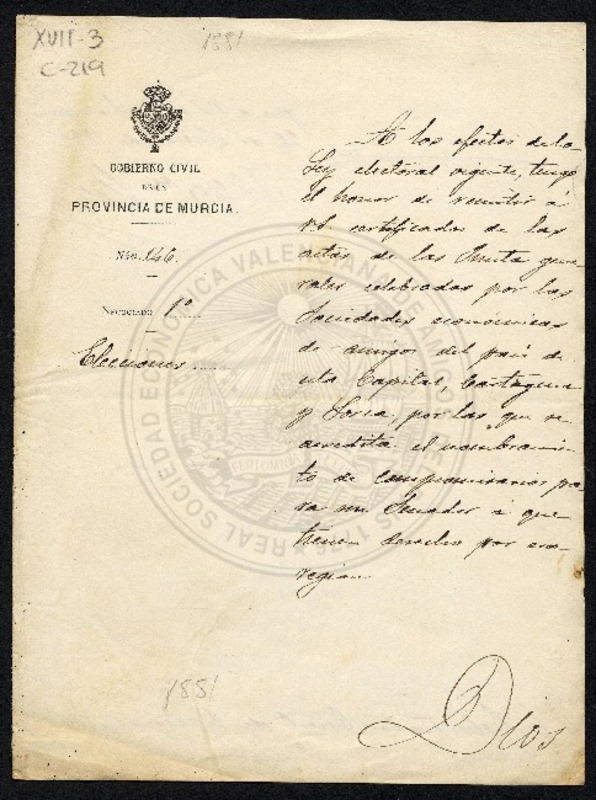 XVII-3
C-219
1881
GOBIERNO CIVIL
DE LA
PROVINCIA DE MURCIA.
Núm.
Negociado 1º
Elecciones
A los efectos de la
Ley electoral vigente, tengo
el honor de remitir á
V.S. certificados de las
actas de las Juntas gene
rales celebradas por las
Sociedades económicas
de amigos del país de
esta Capital, Cartagena
y Lorca, por las que se
acredita el nombramien
to de compromisarios pa
ra un Senador á que
tienen derecho por esa
region.
Dios
1881
REAL SOCIEDAD ECONÓMICA VALENCIANA DE AMIGOS 1776